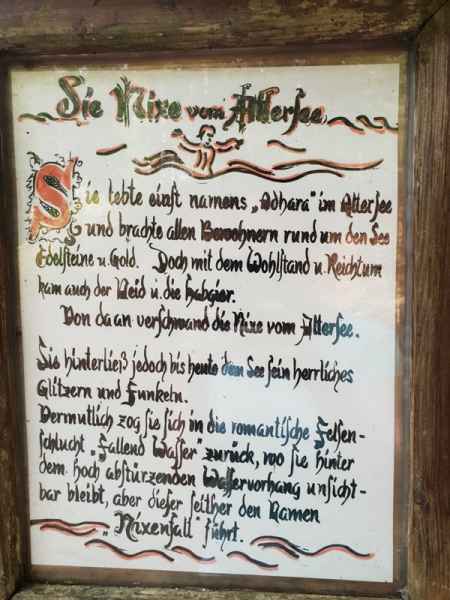 Sie Nixe vom Attersee
Sie lebte einst namens „Adhara" im Attersee
und brachte allen Bewohnern rund um den See
Edelsteine u. Gold. Doch mit dem Wohlstand u. Reichtum
kam auch der Neid u. die Habgier.
Von da an verschwand die Nixe vom Attersee.
Sie hinterließ jedoch bis heute dem See sein herrliches
Glitzern und Funkeln.
Vermutlich zog sie sich in die romantische Felsen-
schlucht „Fallend Wasser" zurück, wo sie hinter
dem hoch abstürzenden Wasservorhang unsicht-
bar bleibt, aber dieser seither den Namen
„Nixenfall" führt.